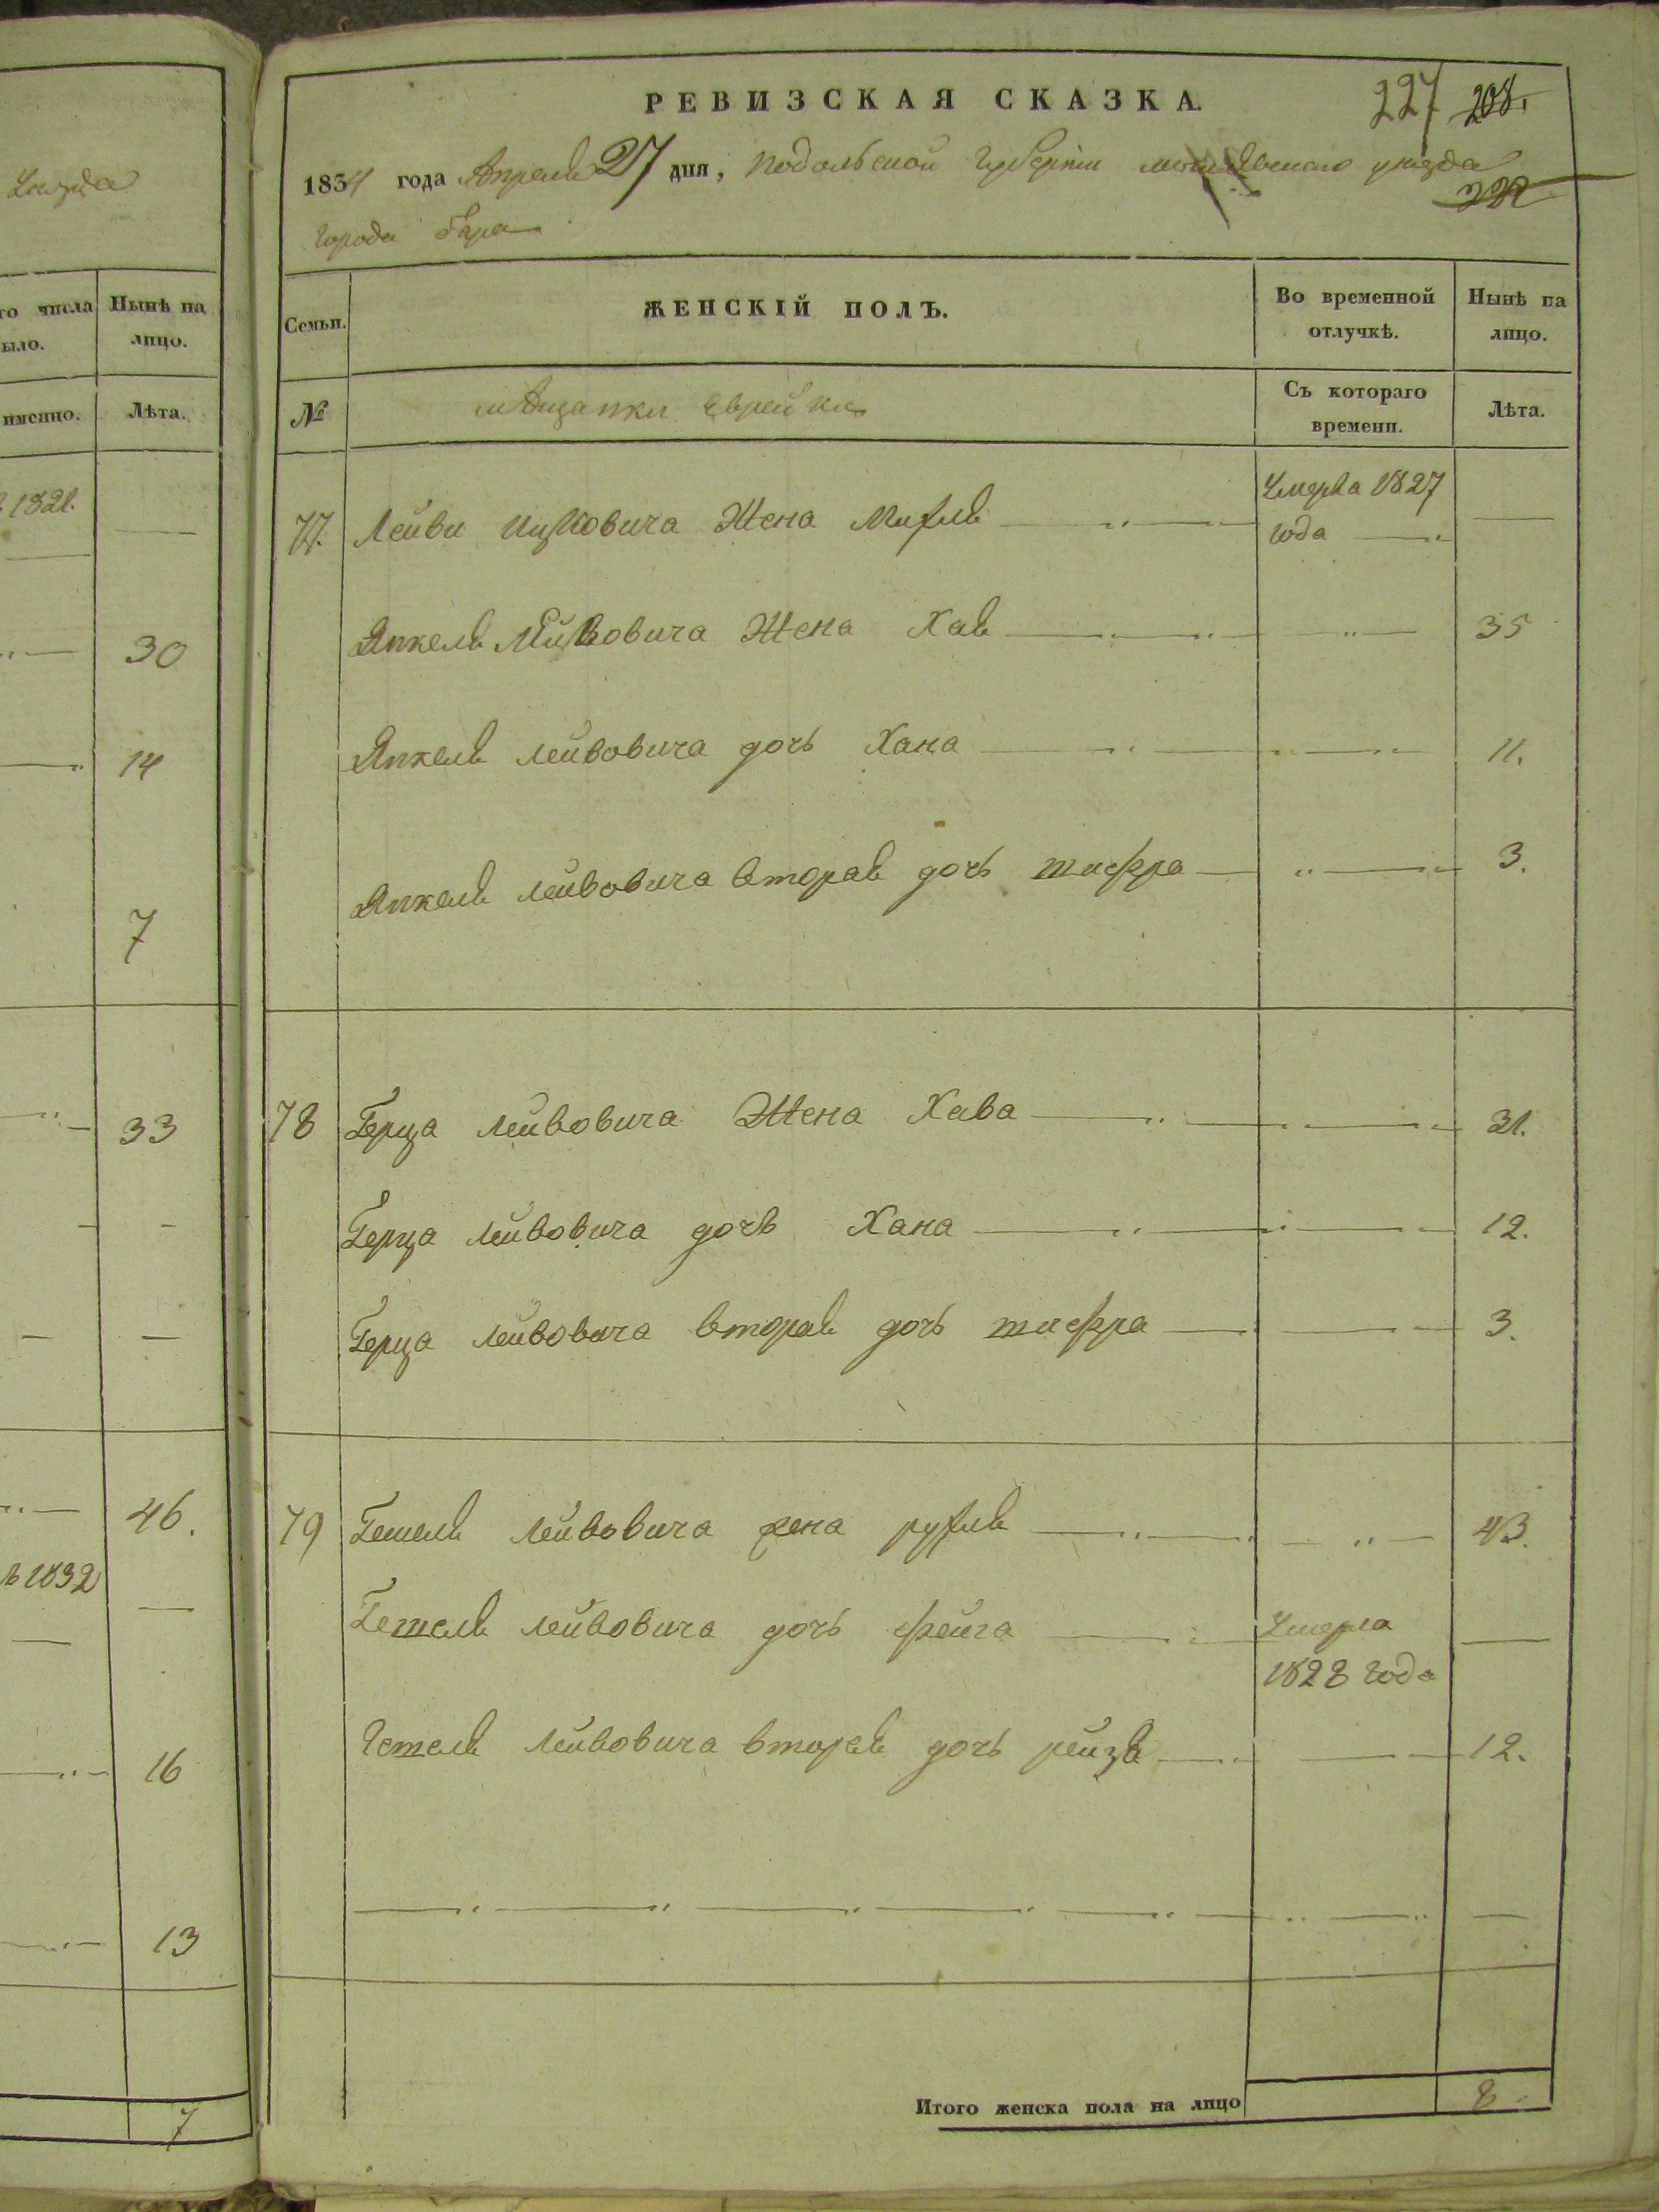 уезда
го числа Нынѣ на
ыло. лицо.
именно. Лѣта.
1821.
30
14
7
33
46.
1832
16
13
7
РЕВИЗСКАЯ СКАЗКА.
227 208.
1834 года Апреля 27 дня, Подольской Губернии уезда
322
города Бара
Семьи. ЖЕНСКІЙ ПОЛЪ. Во временной отлучкѣ. Нынѣ на лицо.
№ мѣщанки еврейки Съ котораго времени. Лѣта.
77. Лейви Ицковича Жена Михля Умерла 1827 года
Янкеля Лейвовича Жена Хая 35
Янкеля Лейвовича дочь Хана 11.
Янкеля Лейвовича вторая дочь шифра 3.
78 Герца Лейвовича Жена Хава 31.
Герца Лейвовича дочь Хана 12.
Герца Лейвовича вторая дочь шифра 3.
79 Гешеля Лейвовича жена рухля 43.
Гешеля Лейвовича дочь фейга Умерла 1828 года
Гешеля Лейвовича вторая дочь рейзя 12.
Итого женска пола на лицо 8